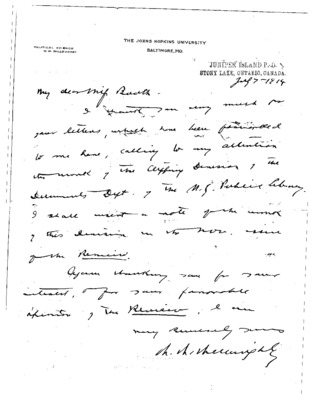 THE JOHNS HOPKINS UNIVERSITY
BALTIMORE, MD.
POLITICAL SCIENCE
W. W. WILLOUGHBY
JUNIPER ISLAND P.O.
STONY LAKE, ONTARIO, CANADA.
July 7 - 1914
My dear Miss
I thank you very much for
your letters, which have been forwarded
to me here, calling to my attention
the work of the Clipping Division of the
Documents Dept. of the N.Y. Public Library.
I shall insert a note of the work
of this Division in the Nov. issue
of the Review.
Again thanking you for your
interest, & for your favorable
opinion of the Review, I am
very sincerely yours
W. W. Willoughby